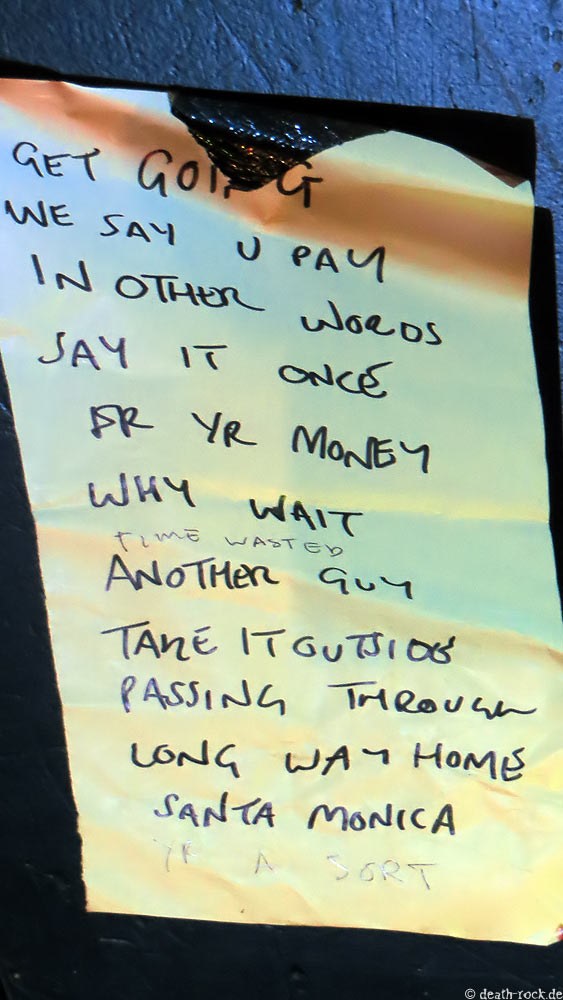 GET GOING
WE SAY U PAY
IN OTHER WORDS
SAY IT ONCE
FR YR MONEY
WHY WAIT
TIME WASTED
ANOTHER GUY
TAKE IT OUTSIDE
PASSING THROUGH
LONG WAY HOME
SANTA MONICA
YR A SORT
© death-rock.de